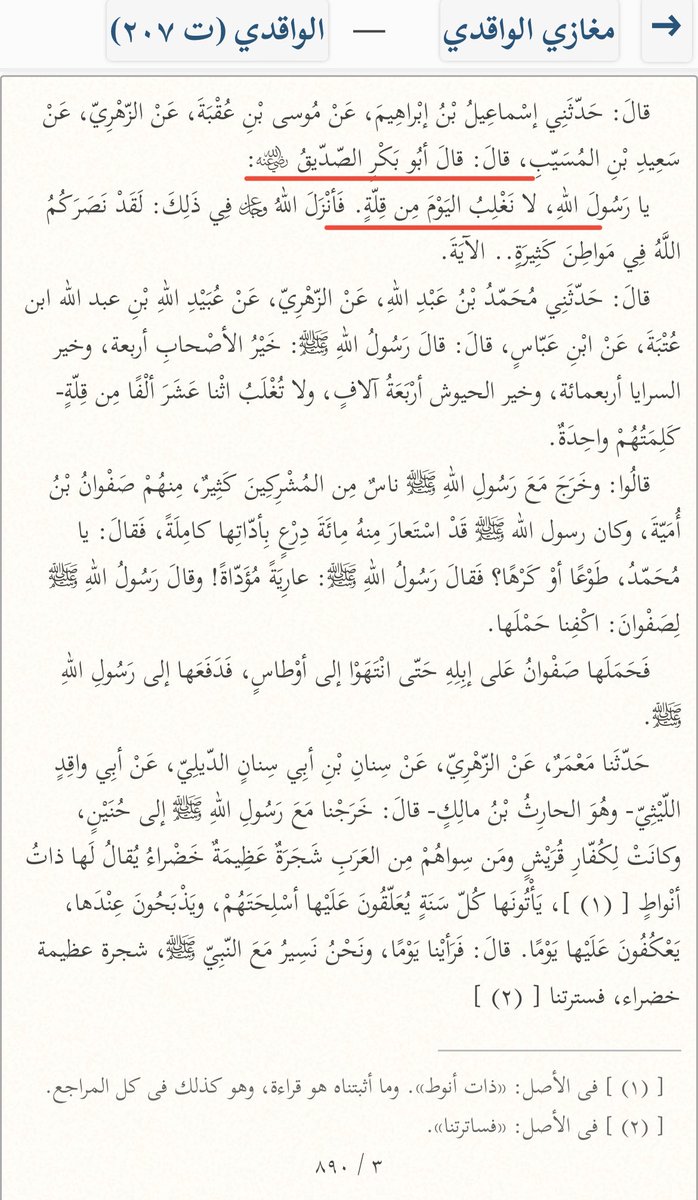 مغازي الواقدي — الواقدي (ت ٢٠٧)
قالَ: حَدّثَنِي إسْماعِيلُ بْنُ إبْراهِيمَ، عَنْ مُوسى بْنِ عُقْبَةَ، عَنْ الزّهْرِيّ، عَنْ
سَعِيدِ بْنِ المُسَيّبِ، قالَ: قالَ أبُو بَكْرٍ الصّدّيقُ ﵁:
يا رَسُولَ اللهِ، لا نَغْلِبُ اليَوْمَ مِن قِلّةٍ. فَأنْزَلَ اللهُ ﷿ فِي ذَلِكَ: لَقَدْ نَصَرَكُمُ
اللَّهُ فِي مَواطِنَ كَثِيرَةٍ.. الآيَةَ.
قالَ: حَدّثَنِي مُحَمّدُ بْنُ عَبْدِ اللهِ، عَنْ الزّهْرِيّ، عَنْ عُبَيْدِ اللهِ بْنِ عبد الله ابن
عُتْبَةَ، عَنْ ابْنِ عَبّاسٍ، قالَ: قالَ رَسُولُ اللهِ ﷺ: خَيْرُ الأصْحابِ أربعة، وخير
السرايا أربعمائة، وخير الحيوش أرْبَعَةُ آلافٍ، ولا تُغْلَبُ اثْنا عَشَرَ ألْفًا مِن قِلّةٍ-
كَلِمَتُهُمْ واحِدَةٌ.
قالُوا: وخَرَجَ مَعَ رَسُولِ اللهِ ﷺ ناسٌ مِن المُشْرِكِينَ كَثِيرٌ، مِنهُمْ صَفْوانُ بْنُ
أُمَيّةَ، وكان رسول الله ﷺ قَدْ اسْتَعارَ مِنهُ مِائَةَ دِرْعٍ بِأداتِها كامِلَةً، فَقالَ: يا
مُحَمّدُ، طَوْعًا أوْ كَرْهًا؟ فَقالَ رَسُولُ اللهِ ﷺ: عارِيَةً مُؤَدّاةً! وقالَ رَسُولُ اللهِ ﷺ
لِصَفْوانَ: اكْفِنا حَمْلَها.
فَحَمَلَها صَفْوانُ عَلى إبِلِهِ حَتّى انْتَهَوْا إلى أوْطاسٍ، فَدَفَعَها إلى رَسُولِ اللهِ
ﷺ.
حَدّثَنا مَعْمَرٌ، عَنْ الزّهْرِيّ، عَنْ سِنانِ بْنِ أبِي سِنانٍ الدّيلِيّ، عَنْ أبِي واقِدٍ
اللّيْثِيّ- وهُوَ الحارِثُ بْنُ مالِكٍ- قالَ: خَرَجْنا مَعَ رَسُولِ اللهِ ﷺ إلى حُنَيْنٍ،
وكانَتْ لِكُفّارِ قُرَيْشٍ ومَن سِواهُمْ مِن العَرَبِ شَجَرَةٌ عَظِيمَةٌ خَضْراءُ يُقالُ لَها ذاتُ
أنْواطٍ [ (١) ]، يَأْتُونَها كُلّ سَنَةٍ يُعَلّقُونَ عَلَيْها أسْلِحَتَهُمْ، ويَذْبَحُونَ عِنْدَها،
يَعْكُفُونَ عَلَيْها يَوْمًا. قالَ: فَرَأيْنا يَوْمًا، ونَحْنُ نَسِيرُ مَعَ النّبِيّ ﷺ، شجرة عظيمة
خضراء، فسترتنا [ (٢) ]
[ (١) ] فى الأصل: «ذات أنوط». وما أثبتناه هو قراءة، وهو كذلك فى كل المراجع.
[ (٢) ] فى الأصل: «فساترتنا».
٣ / ٨٩٠